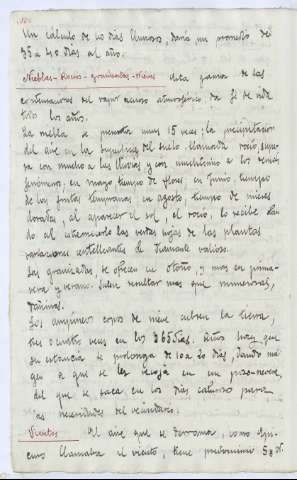 Un cálculo de 40 días lluviosos, daría un promedio de
35 a 40 días al año.
Nieblas-Rocío-granizadas-Nieves esta gama de las
continuaciones del vapor acuoso atmosférico da fe de vida
todos los años.
La niebla se presenta unas 15 veces; la precipitación
del aire en la superficie del suelo llamada rocío, supe-
ra con mucho a las lluvias y con muchísimo a los demás
fenómenos, en mayo tiempo de flores en Junio tiempo
de las frutas tempranas en agosto, tiempo de mieses
doradas, al aparecer el sol, el rocío, lo recibe dan
do al estremecerlo las verdes hojas de las plantas
centelleantes de diamante valioso.
Las granizadas se ofrecen en Otoño, y mas en prima-
vera y verano. Suelen resultar mas que numerosas,
dañinas.
Los ampúneos copos de nieve cubren la tierra,
tres o cuatro veces en los 365 días. Años hay que
su estancia se prolonga de 10 a 20 días, dando már
gen a que se les recoja en un pozo-nevera,
del que se saca en los días calurosos para
las necesidades del vecindario.
Vientos El aire que se derrama, como
llamaba el viento, tiene predominio